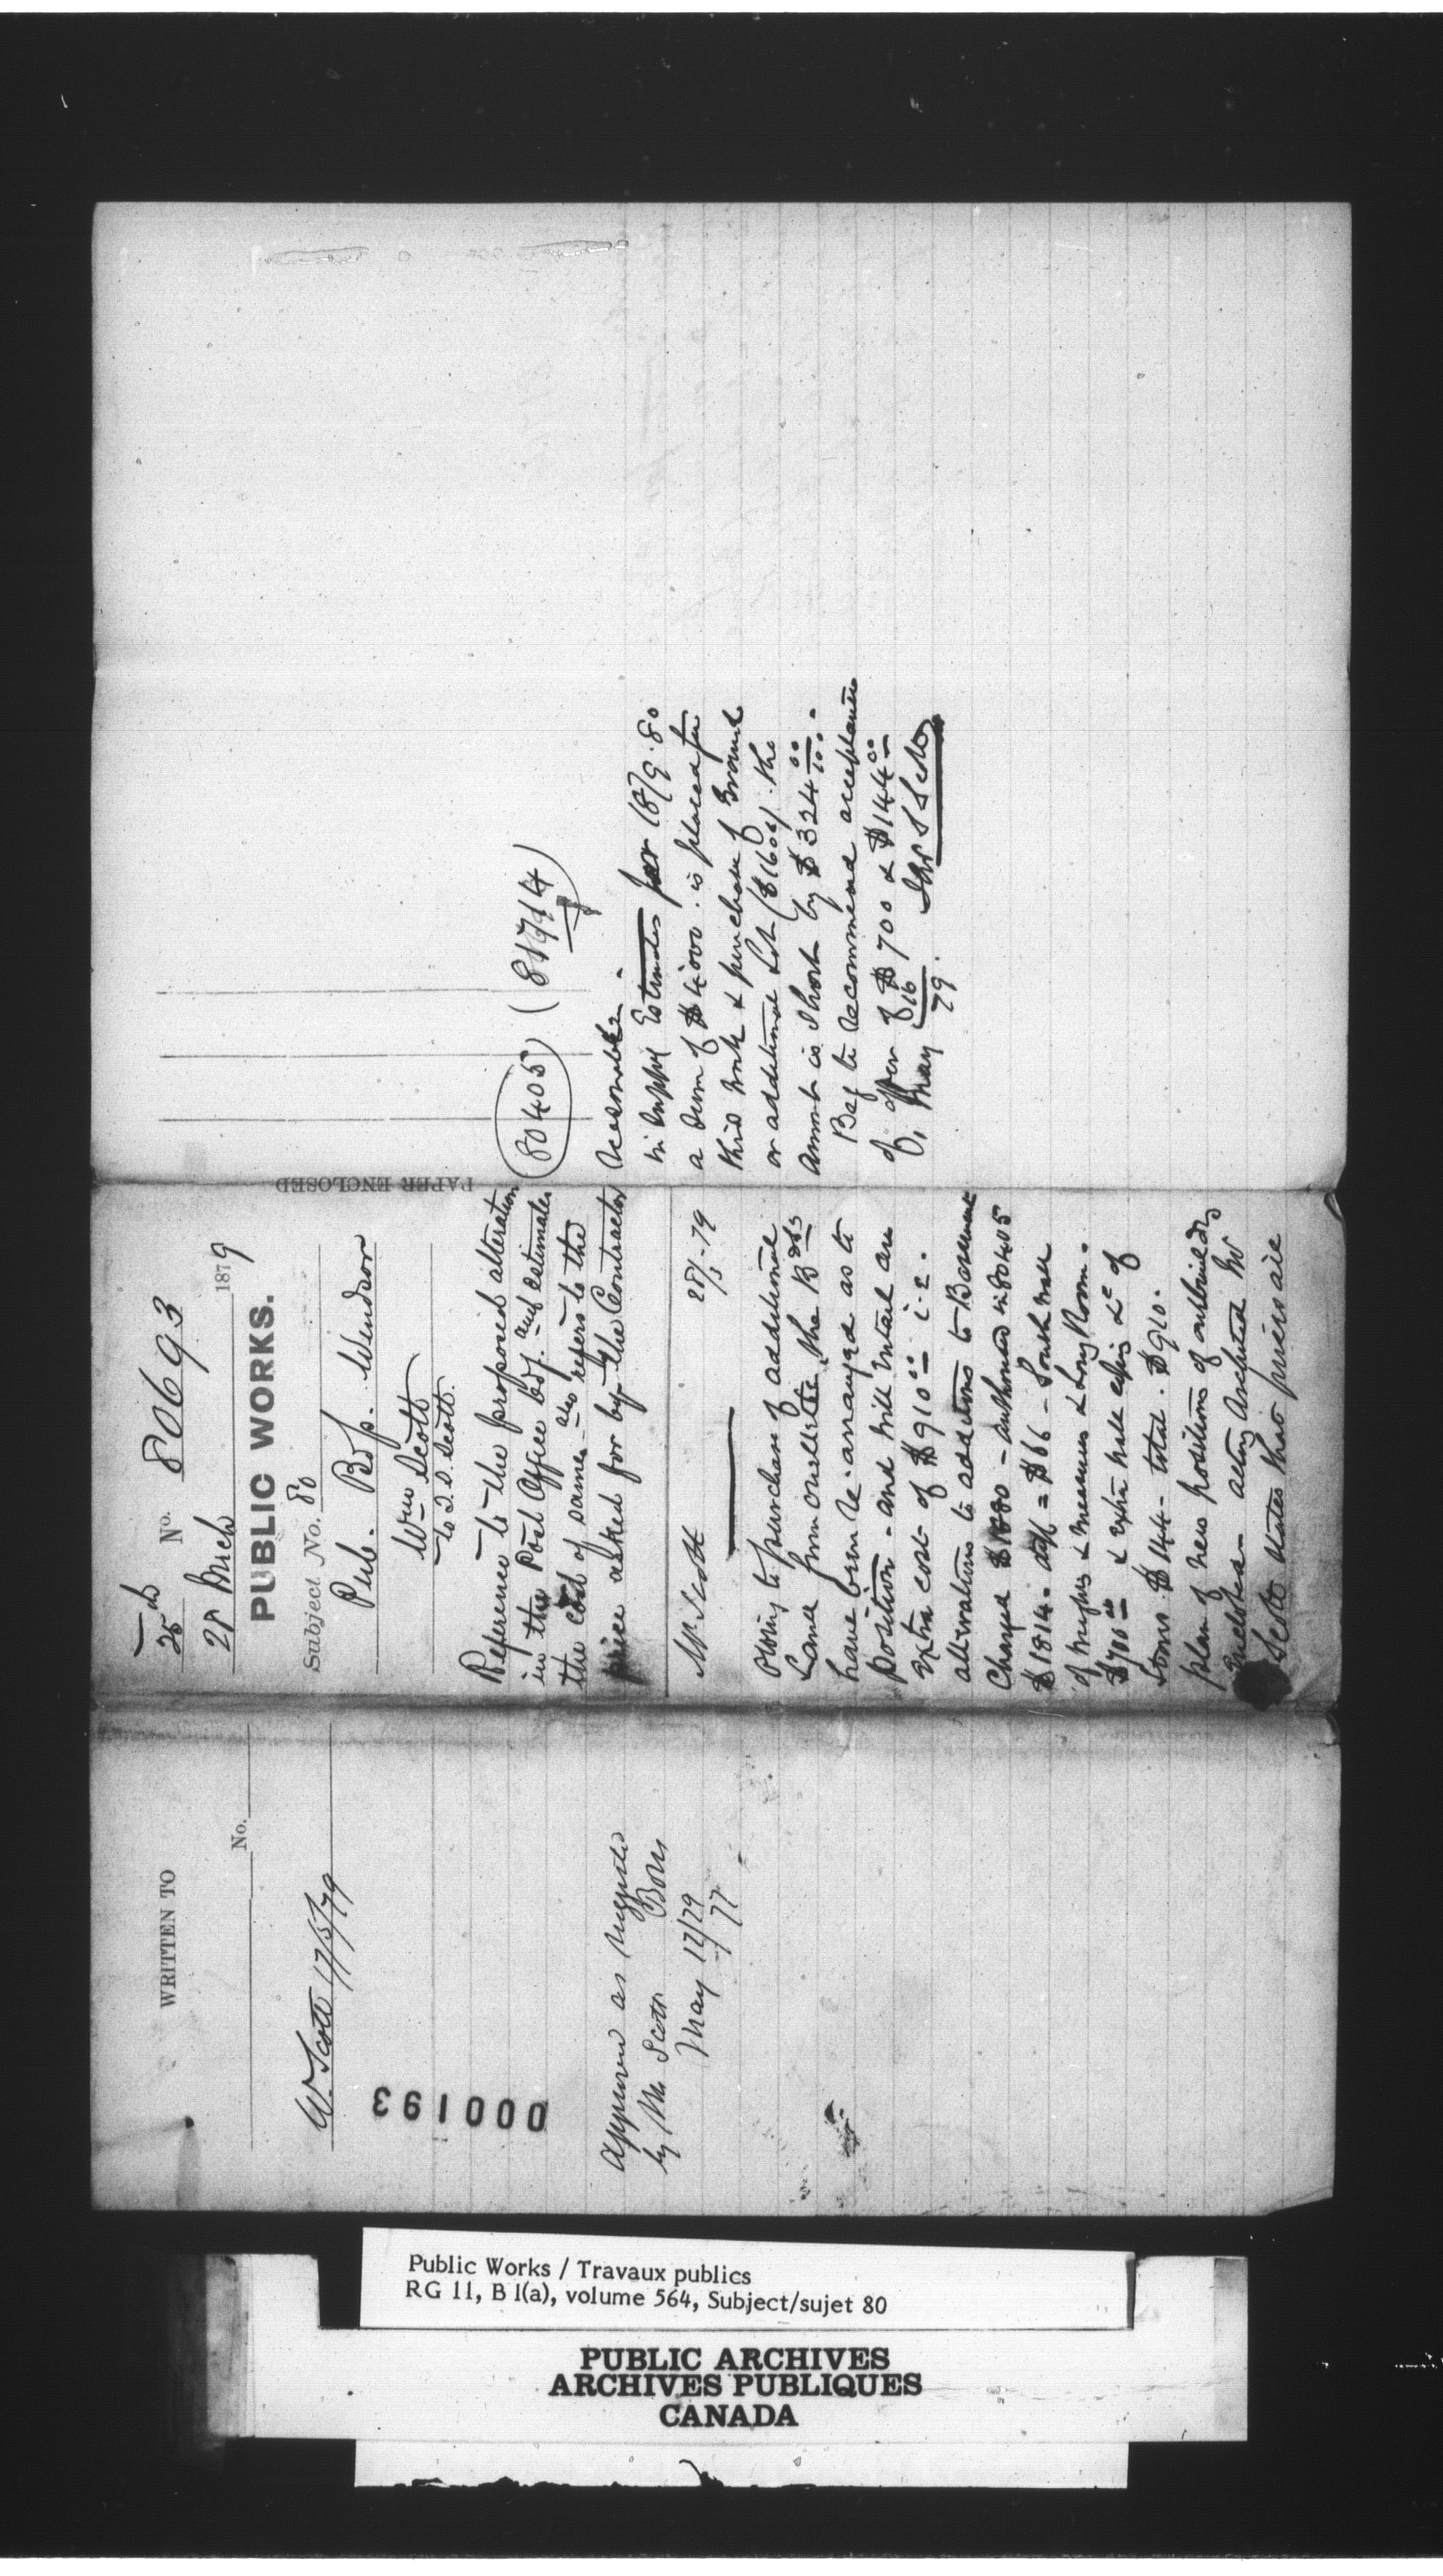 WRITTEN TO
No.
W. Scott 17/5/79
000193
Approved as suggested
by Mr Scott
May 12/79
25th No. 80693
28 Mch 1879
PUBLIC WORKS.
Subject No. 80
Pub. Bdgs. Windsor
Wm Scott
to T. S. Scott.
Reference to the proposed alteration
in the Post Office Bdg. and estimates
the cost of same - also refers to the
price asked for by the Contractor
Mr Scott 28/3-79
Owing to purchase of additional
Land from Ouellette the Bdgs
have been re-arranged as to
position - and will entail an
extra cost of $910.00 i.e.
alterations to additions to Basement
Charged $1880 - authorized in 80405
$1814 - diff = $66 - South Wall
of Weights & Measures & Long Room.
$700.00 & extra wall coping &c of
$144 - total. $910.
plan of new position of outbuildgs
enclosed - acting Architect W
Scott states that prices are
PAPER ENCLOSED
(80405) (81714)
reasonable.
in Suppy Estimates for 1879.80
a sum of $4,000. is placed for
this work & purchase of Ground
or additional Lot ($1600). the
amount is short by $324
Beg to recommend acceptance
of offer of $700 & $144.00
May 16 79. Thos S Scott
Public Works / Travaux publics
RG 11, B 1(a), volume 564, Subject/sujet 80
PUBLIC ARCHIVES
ARCHIVES PUBLIQUES
CANADA